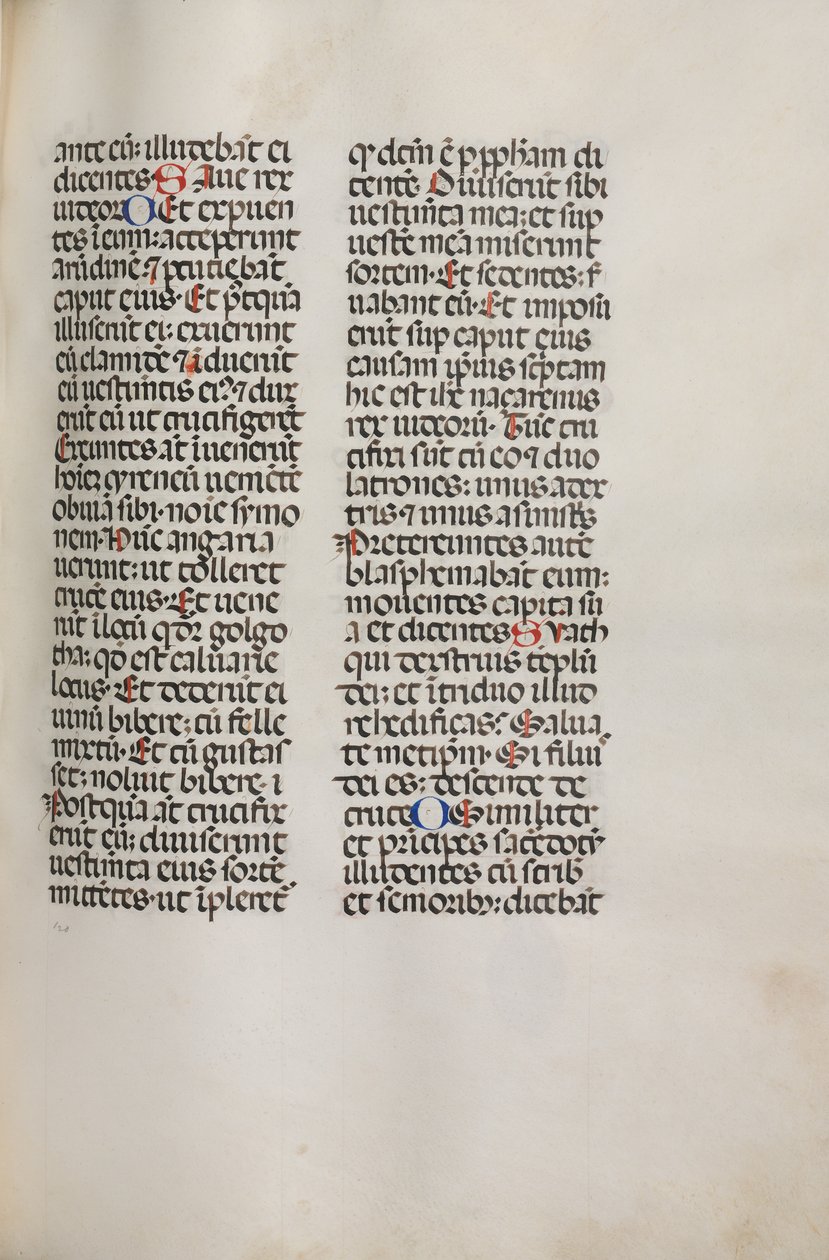 ante eū: illudebāt ei
dicentes· S Aue rex
iudeoꝝ O Et expuen
tes ī eum: acceperunt
arūdinē: ⁊ ꝑcutiebāt
caput eius· Et p̄tquā
illuserūt ei: exuerunt
eū clamide ⁊ īduerūt
eū uestimītis eiꝰ: ⁊ dux
erūt eū ut crucifigerēt
Exeuntes āt īuenerūt
hoīeꝫ cyreneū uemētē
obuiā sibi· noīe symo
nem· Hūc angaria
uerunt: ut tolleret
crucē eius· Et uene
rūt ī locū q̄ dr̄ golgo
tha: qđ est caluarie
locus· Et dederūt ei
uinū bibere: cū felle
mixtū· Et cū gustas
set: noluit bibere· i
Postquā āt crucifix
erūt eū: diuiserunt
uestimīta eius sortē
mittētes· ut īpleret̄
qđ dc̄m ē ꝑ ꝓpħam di
centē· Diuiserūt sibi
uestimīta mea: et suꝑ
uestē meā miserunt
sortem· Et sedentes: ẜ
uabant eū· Et imposu
erūt suꝑ caput eius
causam ip̄ius sc̄ptam
hic est ihc̄ naçarenus
rex iudeorū· Tūc cru
cifixi sūt cū eo ⁊ duo
latrones: unus a dex
tris ⁊ unus a sinistˢ
Pretereuntes autē
blasphemabāt eum:
mouentes capita su
a et dicentes S vath
qui dexstruis tēplū
dei: et ī triduo illud
rehedificas: Salua
te metip̄m· Si filiu
dei es: descende de
cruce O Similiter
et prīcipes sacedotꝝ
illudentes cū scribˢ
et senioribꝫ: dicebāt
120